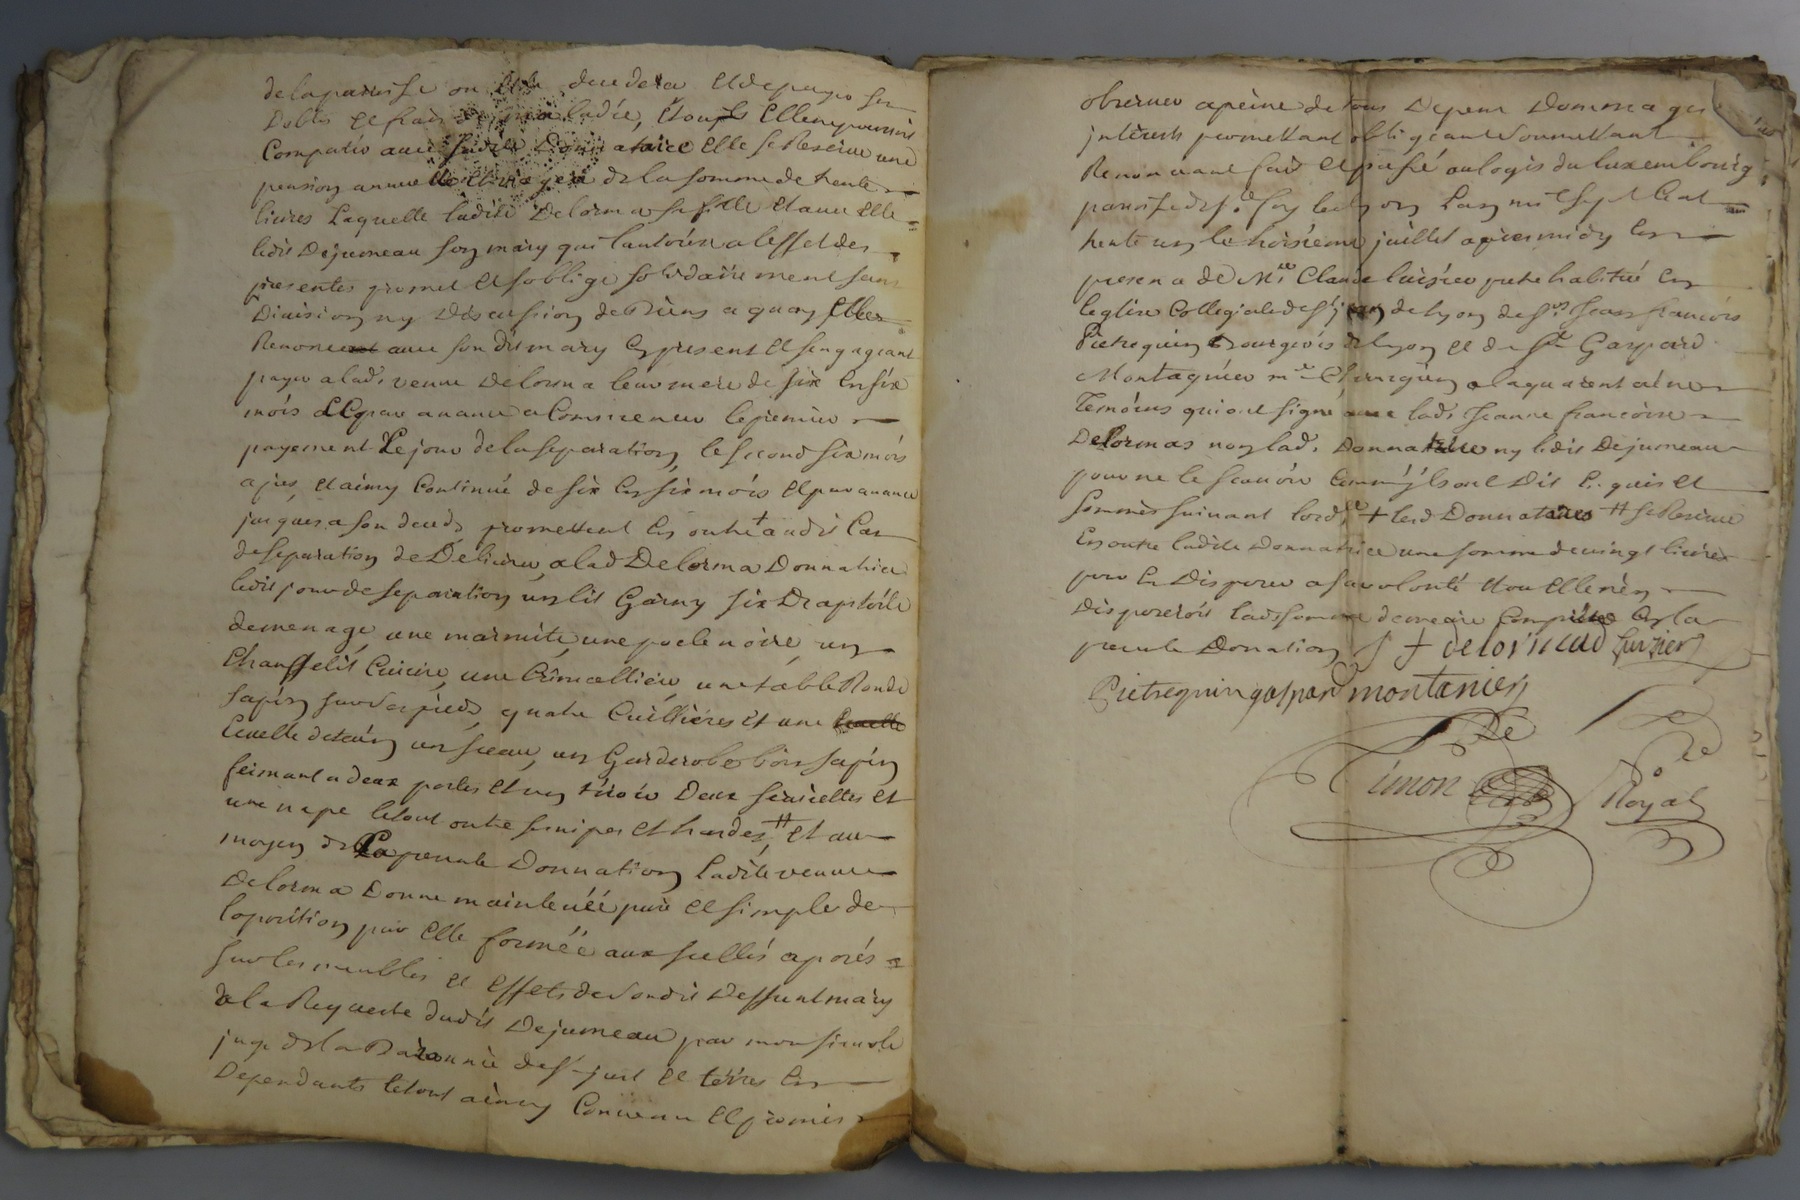 de la paroisse ou elle decedera et de payer ses
debtes et frais de maladie, et ou elle ne pourroit
Compatir avec sadite Donnataire elle se Reserve une
pension annuelle et viagere de la somme de trente
livres Laquelle ladite Delorma sa fille et avec elle
ledit Dejumeau son mary qui lautorise a leffet des
presentes promet et soblige solidairement sans
Division ny Discussion de Biens a quoy elle
Renonce avec son dit mary Cy present et sengageant
payer a lad. veuve Delorma leur mere de six en six
mois et par avance a Commencer le premier
payement Le jour de la separation, le second six mois
apres, et ainsy Continué de six en six mois et par avance
jusques a son deceds, promettent en outre + audit Cas
de separation de Delivrer a lad Delorma Donnatrice
ledit jour de separation un lit Garny six Draps toile
de menage, une marmite, une poele noire, un
Chauffelit Cuivre, une Cremalliere, une table Ronde
sapin sur ses pieds, quatre Cuillieres et une
Ecuelle detain un sceau, un Garderobe bois sapin
fermant a deux portes et un tiroir Deux serviettes et
une nape le tout outre ses nipes et hardes, # et au
moyen de La presente Donnation Ladite veuve
Delorma Donne mainlevée pure et simple de
loposition par elle formée aux scellés aposés
sur les meubles et effets de sondit Deffunt mary
a la Requeste dudit Dejumeau par monsieur le
juge de la Baronnie de St just et terres En
Dependants le tout ainsy Convenu et promis
observer a peine de tous Depens Dommages
interests promettant obligeant soumettant
Renonceant fait et passé au logis du luxembourg
paroisse de Lyon Lan mil sept Cent
trente un le troisieme juillet apres midy En
presence de Mre Claude prete habitué En
leglise Collegiale de St de lyon de sr. Jean françois
Pietrequin Bourgeois de lyon et de sr Gaspard
Montagnier me Chirurgien a laquarentaine
Temoins qui ont signé avec lad. Jeanne françoise
Delormas non lad. Donnatrice ny ledit Dejumeau
pour ne le scavoir Comm'jls ont Dit Enquis et
sommés suivant lord. + lesd Donnataires # se Reserve
En outre ladite Donnatrice une somme de vingt livres
pour En Disposer a sa volonté et ou elle nen
Disposeroit lad. somme demeure Comprise En la
presente Donnation / + delormas
Pietrequin gaspard montanier
De
Timon
De
Royal